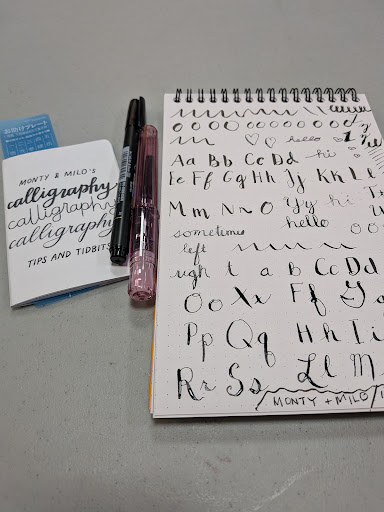 お助けプレート
MONTY & MILO'S
calligraphy
calligraphy
calligraphy
TIPS AND TIDBITS
hello
Aa Bb Cc Dd hi
Ee Ff Gg Hh Jj Kk Ll
Mm Nn O Yy hi
sometimes hello
left
right t a B Cc Dd
Oo Xx Ff G
Pp Qq Hh Ii
Rr Ss Ll M
MONTY + MILO